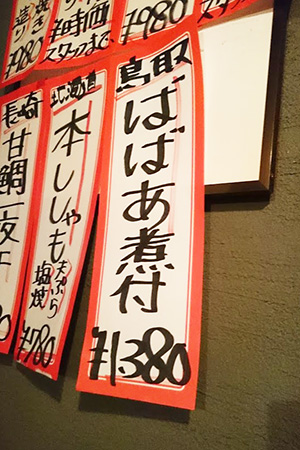 造り
¥980
焼き
¥時価
スタッフまで
¥980
スタッフま
鳥取
ばばあ煮付
¥1380
北海道
本ししゃも
天ぷら
塩焼
¥780
長崎
甘鯛一夜干